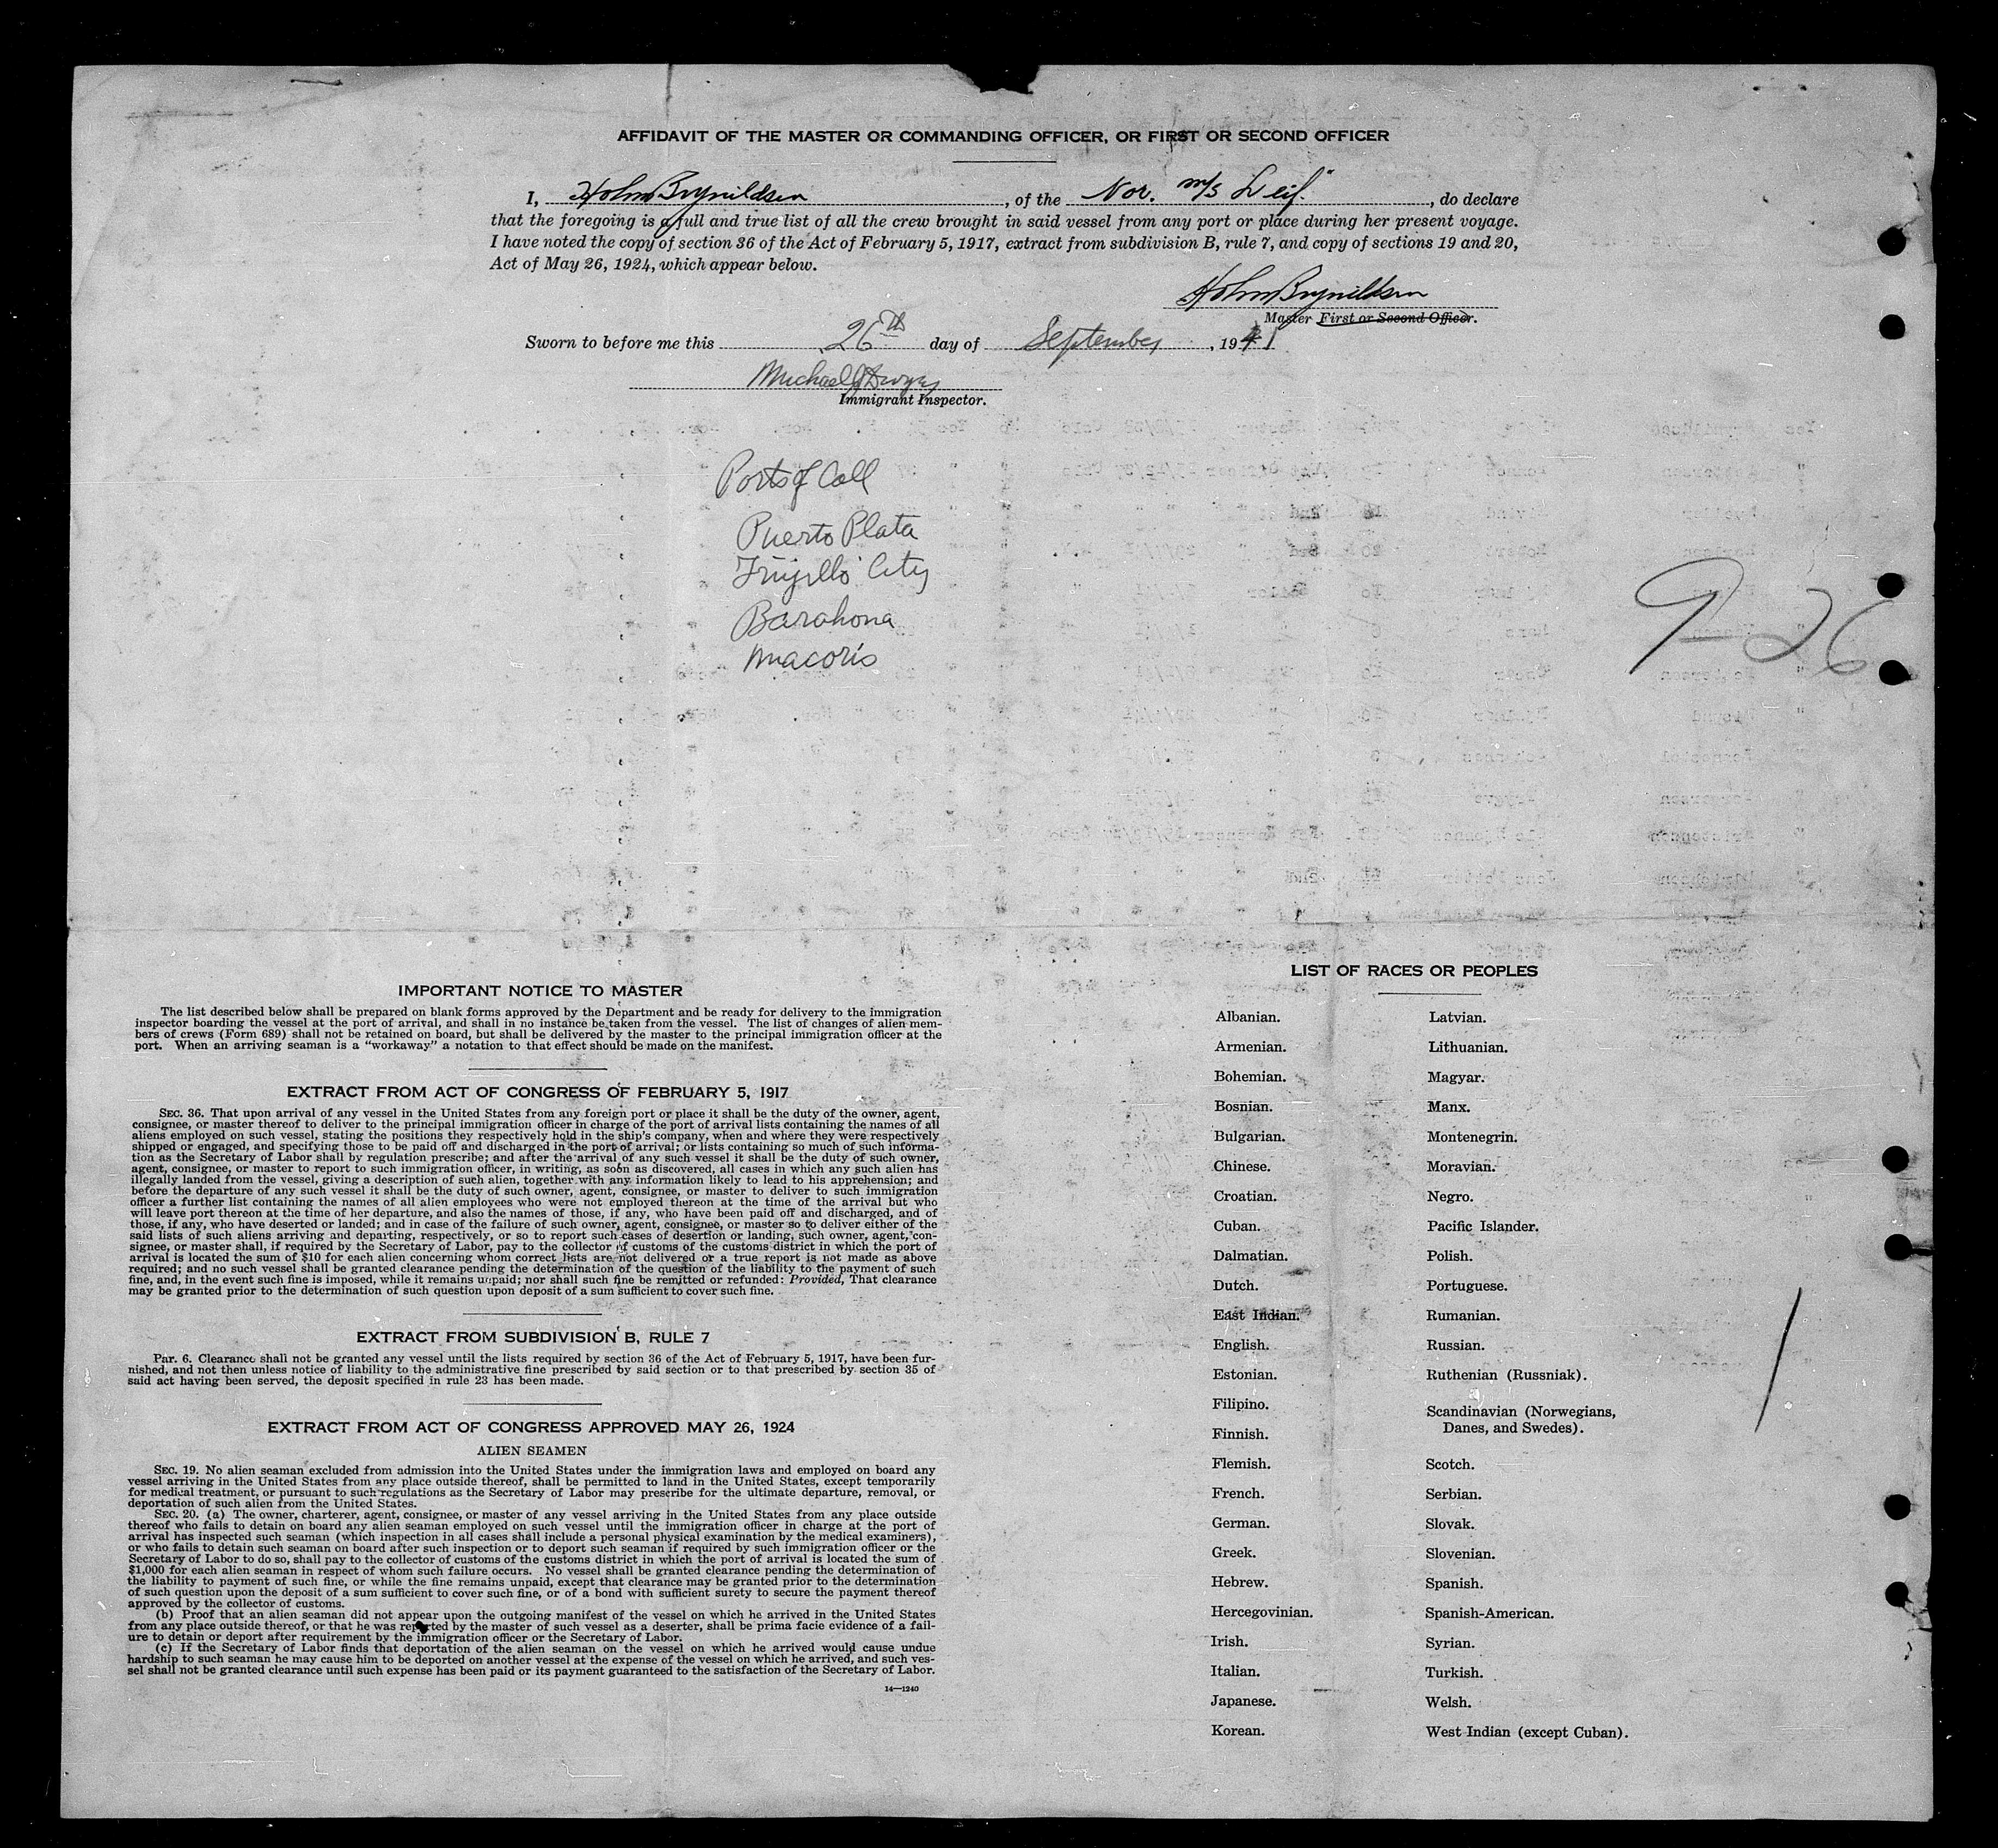 AFFIDAVIT OF THE MASTER OR COMMANDING OFFICER, OR FIRST OR SECOND OFFICER
I, Holm Brynildsen, of the Nor. m/s Leif", do declare
that the foregoing is a full and true list of all the crew brought in said vessel from any port or place during her present voyage.
I have noted the copy of section 36 of the Act of February 5, 1917, extract from subdivision B, rule 7, and copy of sections 19 and 20,
Act of May 26, 1924, which appear below.
Holm Brynildsen
Master First or Second Officer.
Sworn to before me this 26th day of September, 1941
Michael
Immigrant Inspector.
Ports of Call
Puerto Plata
Trujillo City
Barahona
Macoris
9-26
IMPORTANT NOTICE TO MASTER
The list described below shall be prepared on blank forms approved by the Department and be ready for delivery to the immigration
inspector boarding the vessel at the port of arrival, and shall in no instance be taken from the vessel. The list of changes of alien mem-
bers of crews (Form 689) shall not be retained on board, but shall be delivered by the master to the principal immigration officer at the
port. When an arriving seaman is a "workaway" a notation to that effect should be made on the manifest.
EXTRACT FROM ACT OF CONGRESS OF FEBRUARY 5, 1917
SEC. 36. That upon arrival of any vessel in the United States from any foreign port or place it shall be the duty of the owner, agent,
consignee, or master thereof to deliver to the principal immigration officer in charge of the port of arrival lists containing the names of all
aliens employed on such vessel, stating the positions they respectively hold in the ship's company, when and where they were respectively
shipped or engaged, and specifying those to be paid off and discharged in the port of arrival; or lists containing so much of such informa-
tion as the Secretary of Labor shall by regulation prescribe; and after the arrival of any such vessel it shall be the duty of such owner,
agent, consignee, or master to report to such immigration officer, in writing, as soon as discovered, all cases in which any such alien has
illegally landed from the vessel, giving a description of such alien, together with any information likely to lead to his apprehension; and
before the departure of any such vessel it shall be the duty of such owner, agent, consignee, or master to deliver to such immigration
officer a further list containing the names of all alien employees who were not employed thereon at the time of the arrival but who
will leave port thereon at the time of her departure, and also the names of those, if any, who have been paid off and discharged, and of
those, if any, who have deserted or landed; and in case of the failure of such owner, agent, consignee, or master so to deliver either of the
said lists of such aliens arriving and departing, respectively, or so to report such cases of desertion or landing, such owner, agent, con-
signee, or master shall, if required by the Secretary of Labor, pay to the collector of customs of the customs district in which the port of
arrival is located the sum of $10 for each alien concerning whom correct lists are not delivered or a true report is not made as above
required; and no such vessel shall be granted clearance pending the determination of the question of the liability to the payment of such
fine, and, in the event such fine is imposed, while it remains unpaid; nor shall such fine be remitted or refunded: Provided, That clearance
may be granted prior to the determination of such question upon deposit of a sum sufficient to cover such fine.
EXTRACT FROM SUBDIVISION B, RULE 7
Par. 6. Clearance shall not be granted any vessel until the lists required by section 36 of the Act of February 5, 1917, have been fur-
nished, and not then unless notice of liability to the administrative fine prescribed by said section or to that prescribed by section 35 of
said act having been served, the deposit specified in rule 23 has been made.
EXTRACT FROM ACT OF CONGRESS APPROVED MAY 26, 1924
ALIEN SEAMEN
SEC. 19. No alien seaman excluded from admission into the United States under the immigration laws and employed on board any
vessel arriving in the United States from any place outside thereof, shall be permitted to land in the United States, except temporarily
for medical treatment, or pursuant to such regulations as the Secretary of Labor may prescribe for the ultimate departure, removal, or
deportation of such alien from the United States.
SEC. 20. (a) The owner, charterer, agent, consignee, or master of any vessel arriving in the United States from any place outside
thereof who fails to detain on board any alien seaman employed on such vessel until the immigration officer in charge at the port of
arrival has inspected such seaman (which inspection in all cases shall include a personal physical examination by the medical examiners),
or who fails to detain such seaman on board after such inspection or to deport such seaman if required by such immigration officer or the
Secretary of Labor to do so, shall pay to the collector of customs of the customs district in which the port of arrival is located the sum of
$1,000 for each alien seaman in respect of whom such failure occurs. No vessel shall be granted clearance pending the determination of
the liability to payment of such fine, or while the fine remains unpaid, except that clearance may be granted prior to the determination
of such question upon the deposit of a sum sufficient to cover such fine, or of a bond with sufficient surety to secure the payment thereof
approved by the collector of customs.
(b) Proof that an alien seaman did not appear upon the outgoing manifest of the vessel on which he arrived in the United States
from any place outside thereof, or that he was reported by the master of such vessel as a deserter, shall be prima facie evidence of a fail-
ure to detain or deport after requirement by the immigration officer or the Secretary of Labor.
(c) If the Secretary of Labor finds that deportation of the alien seaman on the vessel on which he arrived would cause undue
hardship to such seaman he may cause him to be deported on another vessel at the expense of the vessel on which he arrived, and such ves-
sel shall not be granted clearance until such expense has been paid or its payment guaranteed to the satisfaction of the Secretary of Labor.
14—1240
LIST OF RACES OR PEOPLES
Albanian.
Armenian.
Bohemian.
Bosnian.
Bulgarian.
Chinese.
Croatian.
Cuban.
Dalmatian.
Dutch.
East Indian.
English.
Estonian.
Filipino.
Finnish.
Flemish.
French.
German.
Greek.
Hebrew.
Hercegovinian.
Irish.
Italian.
Japanese.
Korean.
Latvian.
Lithuanian.
Magyar.
Manx.
Montenegrin.
Moravian.
Negro.
Pacific Islander.
Polish.
Portuguese.
Rumanian.
Russian.
Ruthenian (Russniak).
Scandinavian (Norwegians,
Danes, and Swedes).
Scotch.
Serbian.
Slovak.
Slovenian.
Spanish.
Spanish-American.
Syrian.
Turkish.
Welsh.
West Indian (except Cuban).